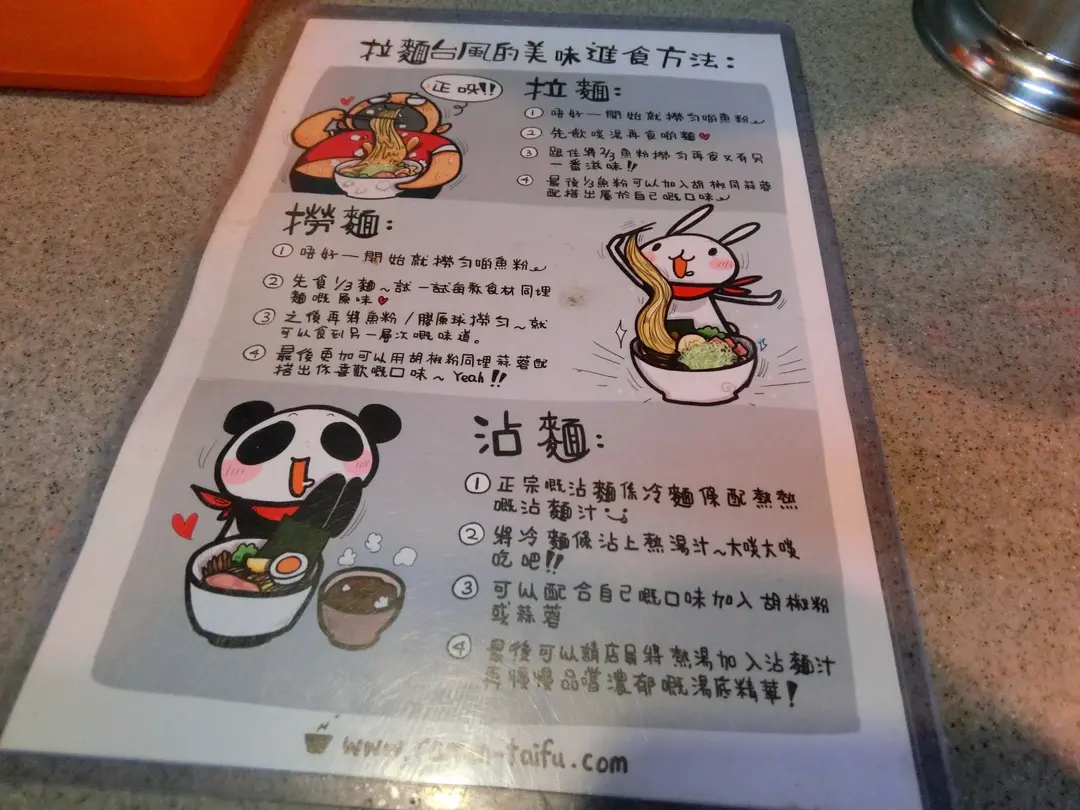 拉麵台風的美味進食方法:
正呀!!
拉麵:
① 唔好一開始就撈勻啲魚粉
② 先飲啖湯再食啲麵♥
③ 跟住將2/3魚粉撈勻再食又有另
一番滋味!!
④ 最後1/3魚粉可以加入胡椒同蒜蓉
配搭出屬於自己嘅口味
撈麵:
① 唔好一開始就撈勻啲魚粉
② 先食1/3麵~試一試每款食材同埋
麵嘅原味♥
③ 之後再將魚粉/膠原球撈勻~就
可以食到另一層次嘅味道。
④ 最後更加可以用胡椒粉同埋蒜蓉配
搭出你喜歡嘅口味~ Yeah!!
沾麵:
① 正宗嘅沾麵係冷麵條配熱熱
嘅沾麵汁
② 將冷麵條沾上熱湯汁~大啖大啖
吃吧!!
③ 可以配合自己嘅口味加入胡椒粉
或蒜蓉
④ 最後可以請店員將熱湯加入沾麵汁
再慢慢品嚐濃郁嘅湯底精華!
www.ramen-taifu.com